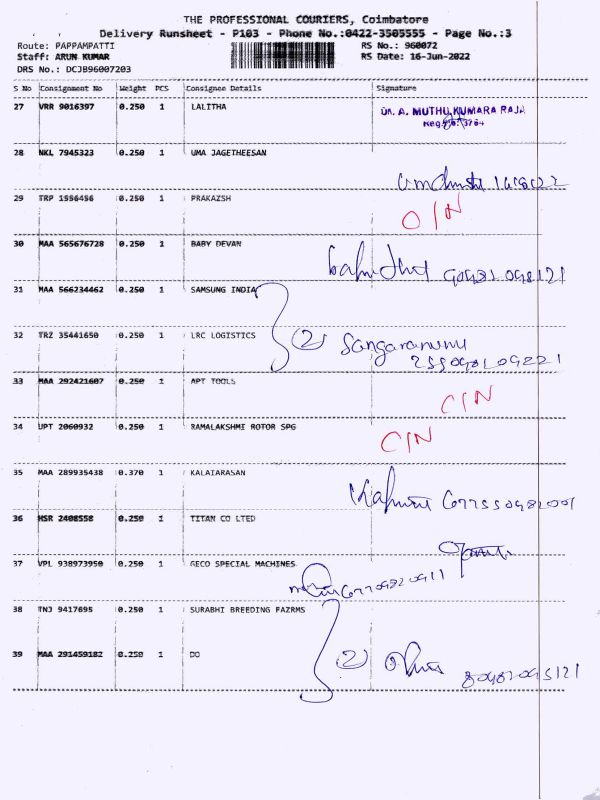 THE PROFESSIONAL COURIERS, Coimbatore
Delivery Runsheet - P103 - Phone No.:0422-3505555 - Page No.:3
Route: PAPPAMPATTI RS No.: 960072
Staff: ARUN KUMAR RS Date: 16-Jun-2022
DRS No.: DCJB96007203
S No Consignment No Weight PCS Consignee Details Signature
27 VRR 9016397 0.250 1 LALITHA
Dr. A. MUTHU KUMARA RAJA
28 NKL 7945323 0.250 1 UMA JAGETHEESAN
29 TRP 1556456 0.250 1 PRAKAZSH
O/N
30 MAA 565676728 0.250 1 BABY DEVAN
31 MAA 566234462 0.250 1 SAMSUNG INDIA
32 TRZ 35441650 0.250 1 LRC LOGISTICS
2
33 MAA 292421607 0.250 1 APT TOOLS
C/N
34 UPT 2060932 0.250 1 RAMALAKSHMI ROTOR SPG
C/N
35 MAA 289935438 0.370 1 KALAIARASAN
36 HSR 2408558 0.250 1 TITAN CO LTED
37 VPL 938973950 0.250 1 GECO SPECIAL MACHINES
38 TNJ 9417695 0.250 1 SURABHI BREEDING FAZRMS
2
39 MAA 291459182 0.250 1 DO